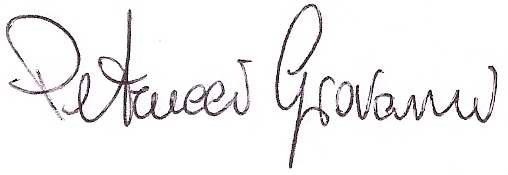 Petrucci Giovanni